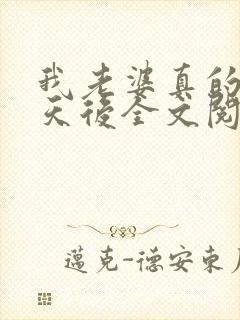 我老婆真的
天後全文閱
邁克-德安東尼